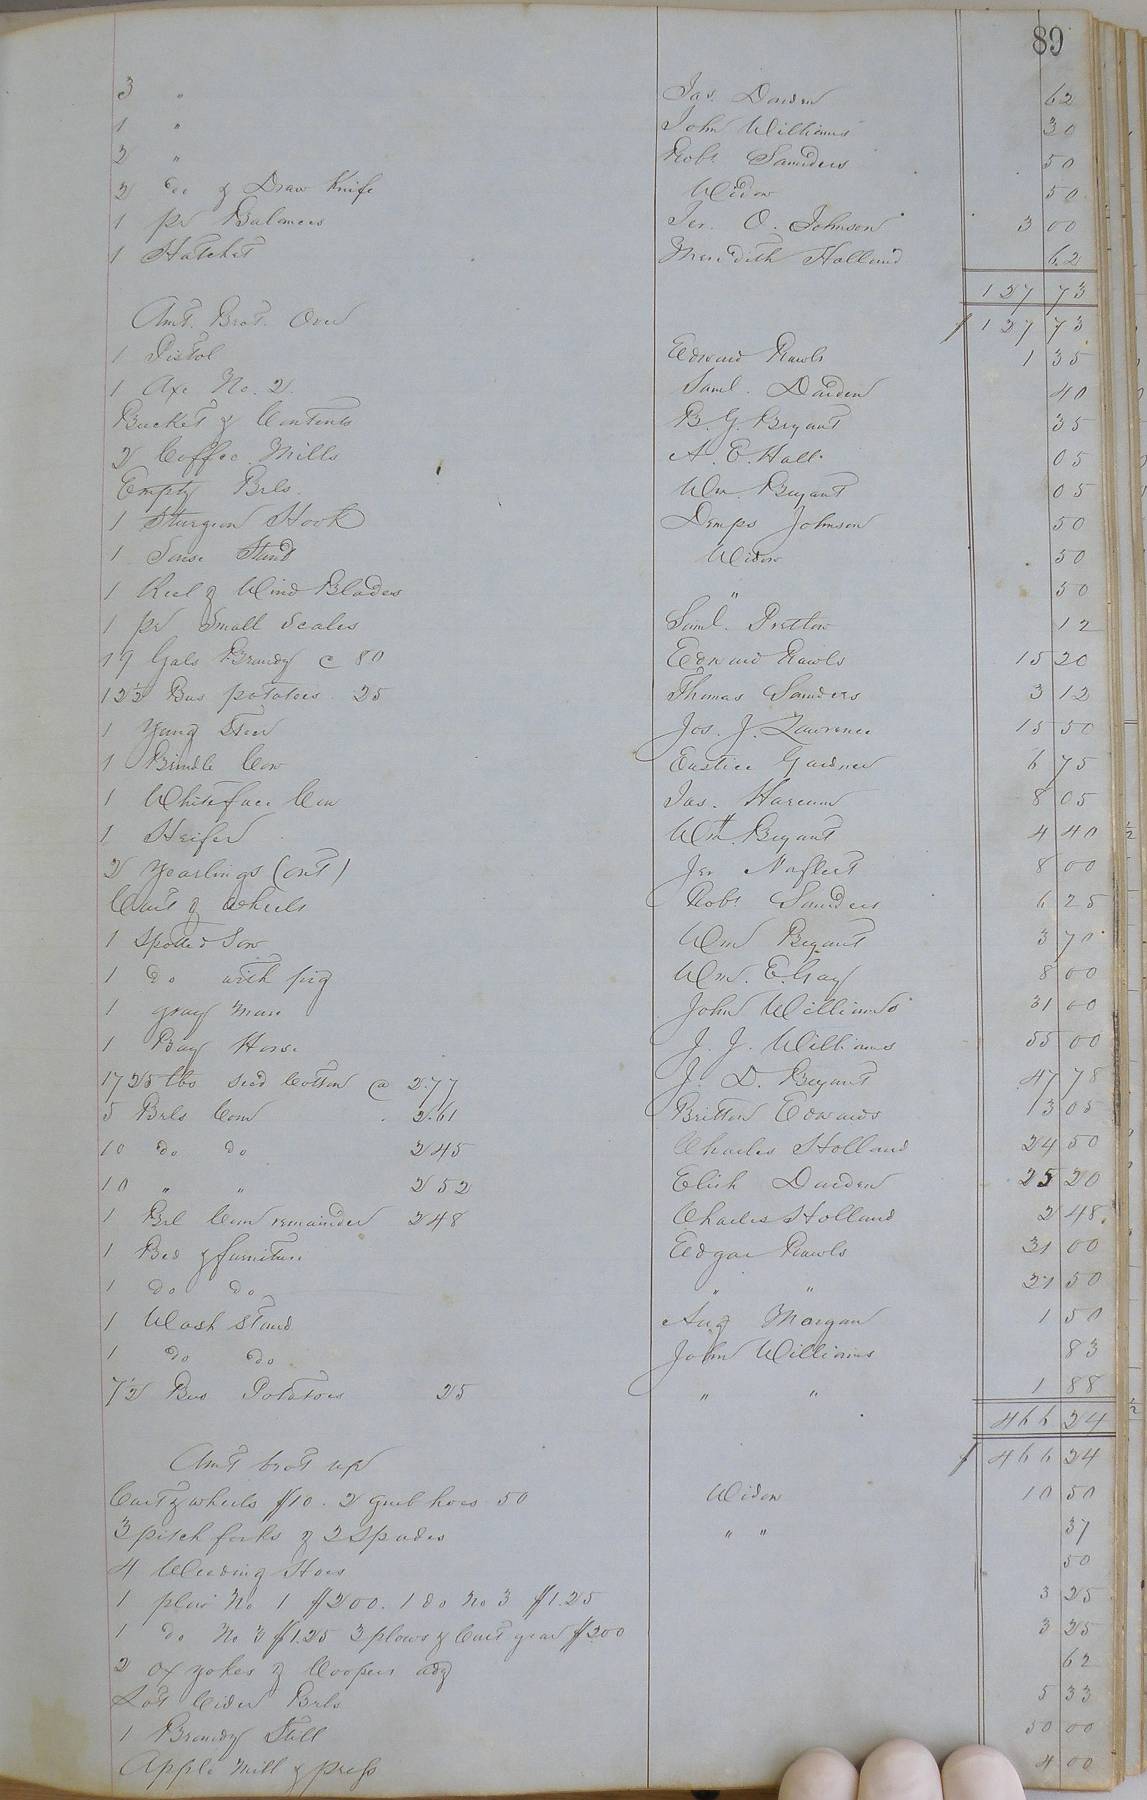 89
3 " Jas. Darden 62
1 " John Williams 30
2 " Robt Saunders 50
2 do & Draw Knife Widow 50
1 pr Balances Jer. O. Johnson 3 00
1 Hatchet Meredith Holland 62
127 73
Amt. Brot. Over 127 73
1 Pistol Edward Rawls 1 35
1 Axe No. 2 Saml. Darden 40
Bucket & Contents B. G. Bryant 35
2 Coffee Mills A. E. Hall 05
Empty Brls. Wm Bryant 05
1 Sturgeon Hook Demps Johnson 50
1 Stand Widow 50
1 Reel & Wind Blades " 50
1 pr Small Scales Saml. Pretlow 12
19 Gals Brandy c 80 Edward Rawls 15 20
12½ Bus potatoes 25 Thomas Saunders 3 12
1 Young Steer Jos. J. Lawrence 15 50
1 Brindle Cow Eustice Gardner 6 75
1 Whiteface Cow Jas. Harcum 8 05
1 Heifer Wm Bryant 4 40
2 Yearlings (out) Jer Norfleet 8 00
Cart & Wheels Robt Saunders 6 25
1 Spotted Sow Wm Bryant 3 70
1 do with pig Wm. E. Gay 8 00
1 gray Mare John Williams 31 00
1 Bay Horse J. J. Williams 55 00
1725 lbs seed Cotton @ 2.77 J. D. Bryant 47 78
5 Brls Corn 2.61 Britton Edwards 13 05
10 do do 245 Charles Holland 24 50
10 " " 252 Elish Darden 25 20
1 Brl Corn remainder 248 Charles Holland 2 48
1 Bed & furniture Edgar Rawls 31 00
1 do do " " 21 50
1 Wash Stand Aug Morgan 1 50
1 do do John Williams 83
7½ Bus Potatoes 25 " " 1 88
466 24
Amt brot up 466 24
Cart & wheels $10. 2 grub hoes 50 Widow 10 50
3 pitch forks & 2 Spades " " 37
4 Weeding Hoes 50
1 plow No 1 $200. 1 do No 3 $1.25 3 25
1 do No 3 $1.25 3 plows & Cart gear $200 3 25
2 ox yokes & Coopers adz 62
Lot Cider Brls 5 33
1 Brandy Still 50 00
Apple Mill & press 4 00